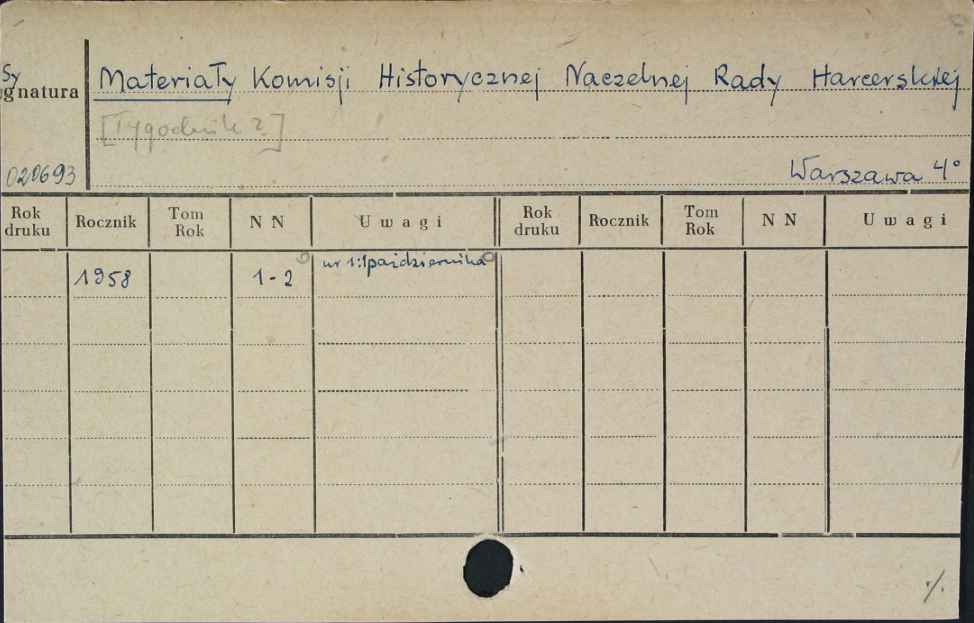 Sy
gnatura
Materiały Komisji Historycznej Naczelnej Rady Harcerskiej
[Tygodnik ?]
020693
Warszawa 4°
Rok druku Rocznik Tom Rok N N Uwagi Rok druku Rocznik Tom Rok N N Uwagi
1958 1-2 nr 1:1 października
·/.